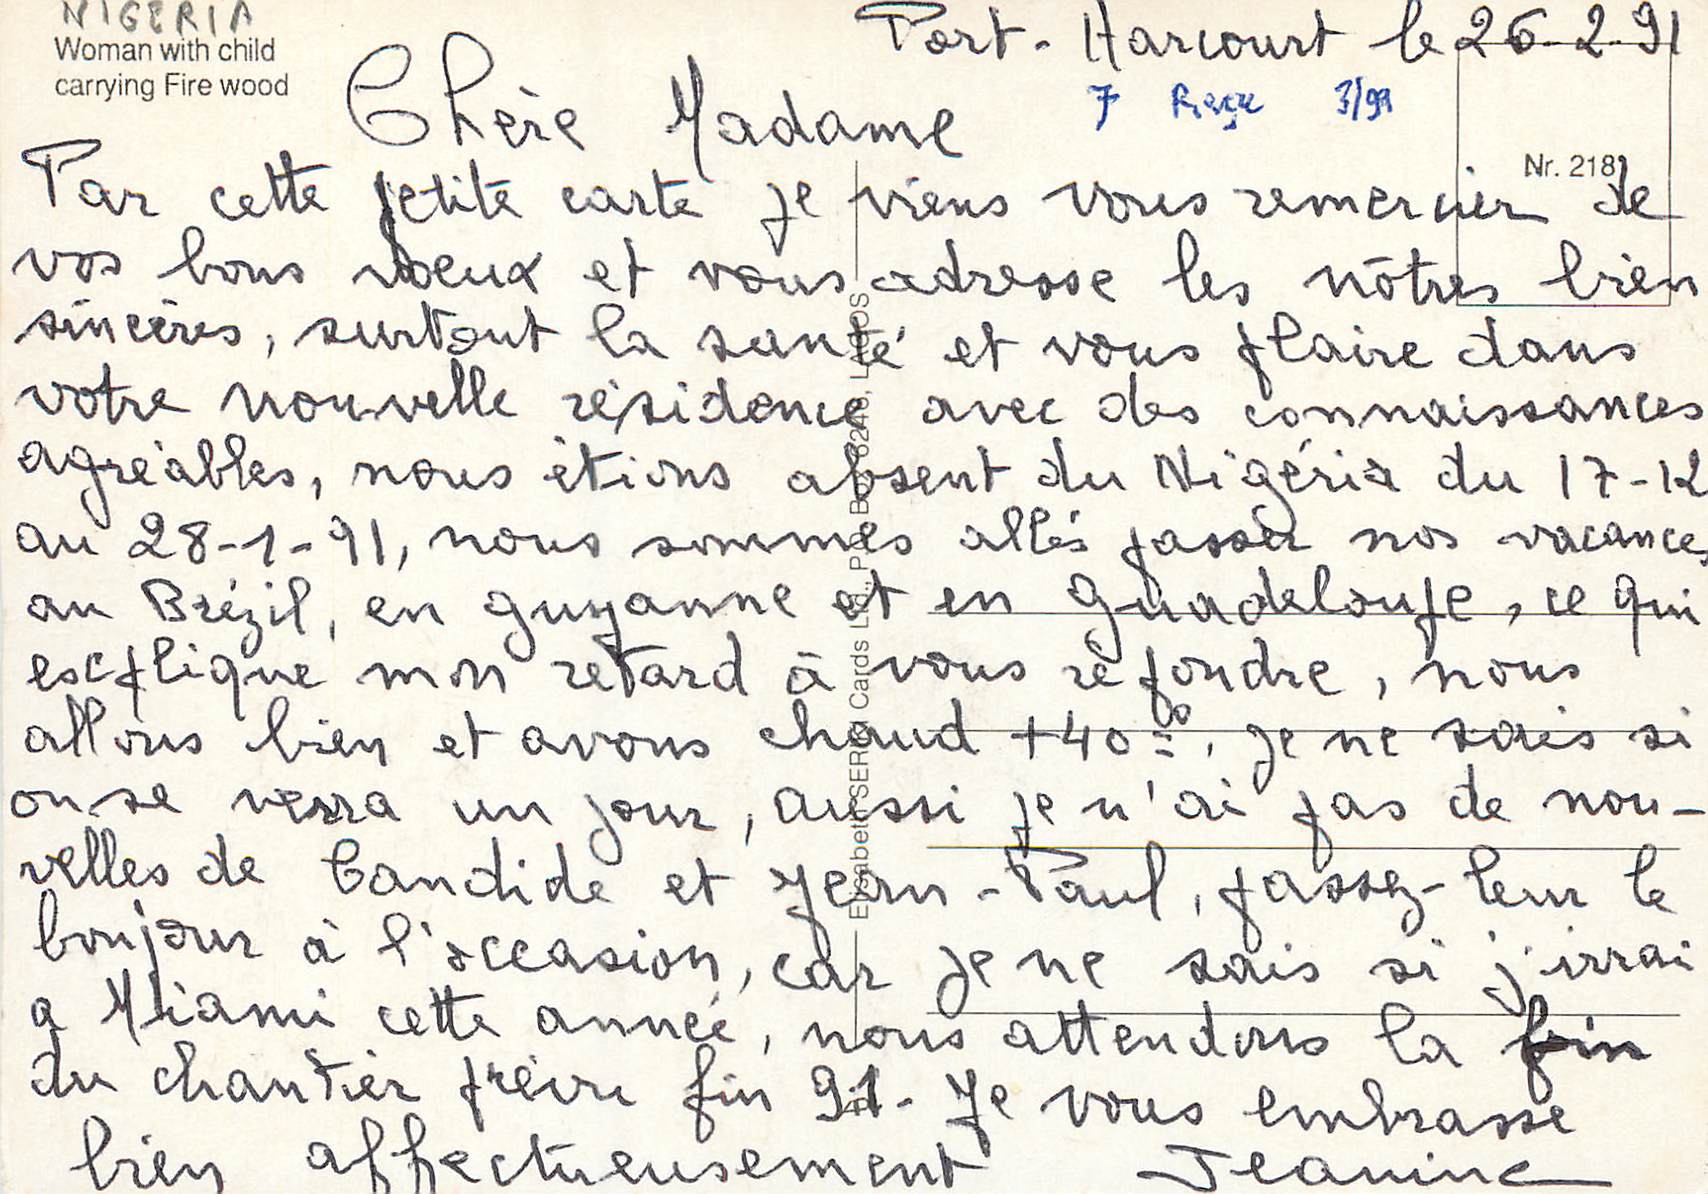 NIGERIA
Woman with child
carrying Fire wood
Port-Harcourt le 26-2-91
7 3/99
Nr. 218
Chère Madame
Par cette petite carte je viens vous remercier de
vos bons voeux et vous adresse les nôtres bien
sincères, surtout la santé et vous plaire dans
votre nouvelle résidence avec des connaissances
agréables, nous étions absent du Nigéria du 17-12
au 28-1-91, nous sommes allés passer nos vacances
au Brézil, en guyanne et en Guadeloupe, ce qui
esxplique mon retard à vous répondre, nous
allons bien et avons chaud +40°. Je ne sais si
on se verra un jour, aussi je n'ai pas de nou-
velles de Candide et Jean-Paul, passez-leur le
bonjour à l'occasion, car je ne sais si j'irrai
a Miami cette année, nous attendons la fin
du chantier prévu fin 91. Je vous embrasse
bien affectueusement Jeanine
Elysabeth SERRA Cards Ltd., P.O. Box LAGOS